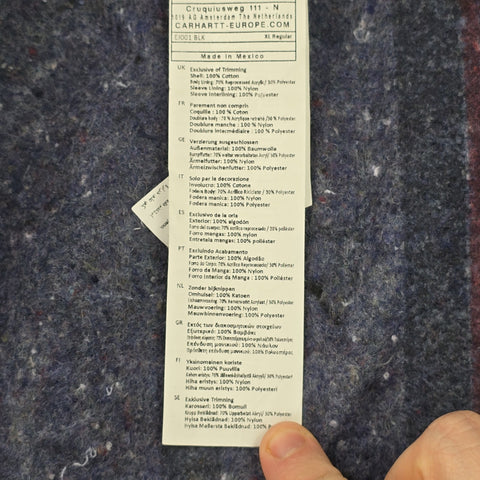 Cruquiusweg 111 - N
1019 AG Amsterdam The Netherlands
CARHARTT-EUROPE.COM
EJ001 BLK XL Regular
Made in Mexico
UK Exclusive of Trimming
Shell: 100% Cotton
Body Lining: 70% Reprocessed Acrylic/ 30% Polyester
Sleeve Lining: 100% Nylon
Sleeve Interlining: 100% Polyester
FR Parement non compris
Coquille : 100 % Coton
Doublure body : 70 % Acrylique retraité /30 % Polyester
Doublure manche : 100 % Nylon
Doublure intermédiaire : 100 % Polyester
GE Verzierung ausgeschlossen
Außenmaterial: 100% Baumwolle
Rumpffutter: 70% weiterverarbeitetes Acryl/ 30% Polyester
Ärmelfutter: 100% Nylon
Ärmelzwischenfutter: 100% Polyester
IT Solo per le decorazione
Involucro: 100% Cotone
Fodera Body: 70% Acrilico Riciclato / 30% Polyester
Fodera manica: 100% Nylon
Fodera manica: 100% Polyester
ES Exclusivo de la orla
Exterior: 100% algodón
Forro del cuerpo: 70% acrílico reprocesado / 30% poliéster
Forro mangas: 100% nylon
Entretela mangas: 100% poliéster
PT Excluindo Acabamento
Parte Exterior: 100% Algodão
Forro do Corpo: 70% Acrílico Reprocessado/ 30% Poliéster
Forro da Manga: 100% Nylon
Forro Interior da Manga: 100% Poliéster
NL Zonder bijknippen
Omhulsel: 100% Katoen
70% Herverwerkt Acryl / 30% Polyester
Mouwvoering: 100% Nylon
Mouwbinnenvoering: 100% Polyester
GR Εκτός των διακοσμητικών στοιχείων
Εξωτερικό: 100% Βαμβάκι
30% Πολυεστέρας
Επένδυση μανικιού: 100% Νάιλον
100% Πολυεστέρας
FI Yksinomainen koriste
Kuori: 100% Puuvilla
70% Akryyli/ 30% Polyesteri
Hiha eristys: 100% Nylon
Hiha muun eristys: 100% Polyesteri
SE Exklusive Trimming
Karosseri: 100% Bomull
Kropp Beklädnad: 70% Upparbetat Akryl/ 30% Polyester
Hylsa Beklädnad: 100% Nylon
Hylsa Mellersta Beklädnad: 100%